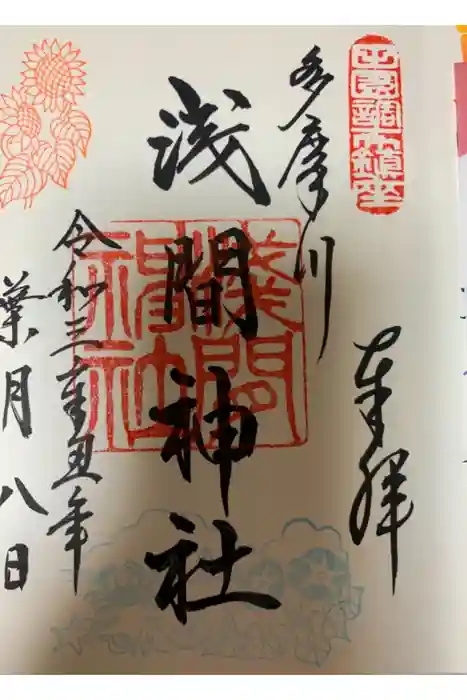 田園調布鎮座
奉拝
多摩川
浅間神社
浅間神社
令和三辛丑年
葉月八日